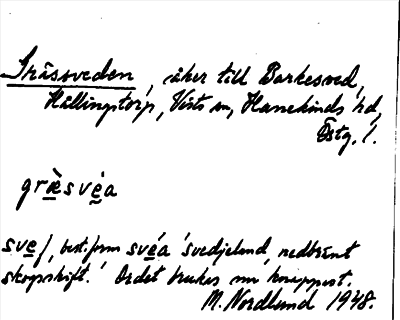 Gräsoveden, åker till Barkesved,
Hällingstorp, Vists sn, Hanekinds hd,
Östg. l.
græsvéa
sve f, best. form svéa 'svedjeland, nedbränt
skogsskift.' Ordet brukas nu knappast.
M. Nordlund 1948.